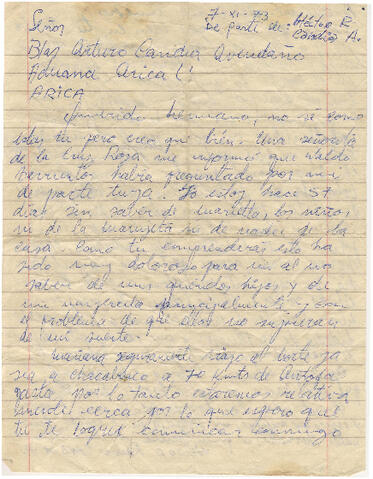 7-XI-73
De parte de: Héctor R.
A.
Señor
Blas Arturo Avendaño
Aduana Arica
ARICA
Querido hermano, no sé como
estas tu pero creo que bien. Una señora
de la Cruz Roja me informó que Waldo
habia preguntado por mi
de parte tuya. Yo estoy hace 57
días sin saber de los niños
ni de la ni de nadie de la
casa. Como tu comprenderas esto ha
sido muy doloroso para mi al no
saber de mis queridos hijos y de
mi principalmente y con
el problema de que ellos no
de mi suerte.
Mañana viajo al norte
a chacabuco a 70 Kmts de Antofa
gasta, por lo tanto estaremos relativa
mente cerca por lo que espero que
tu te logres comunicar conmigo